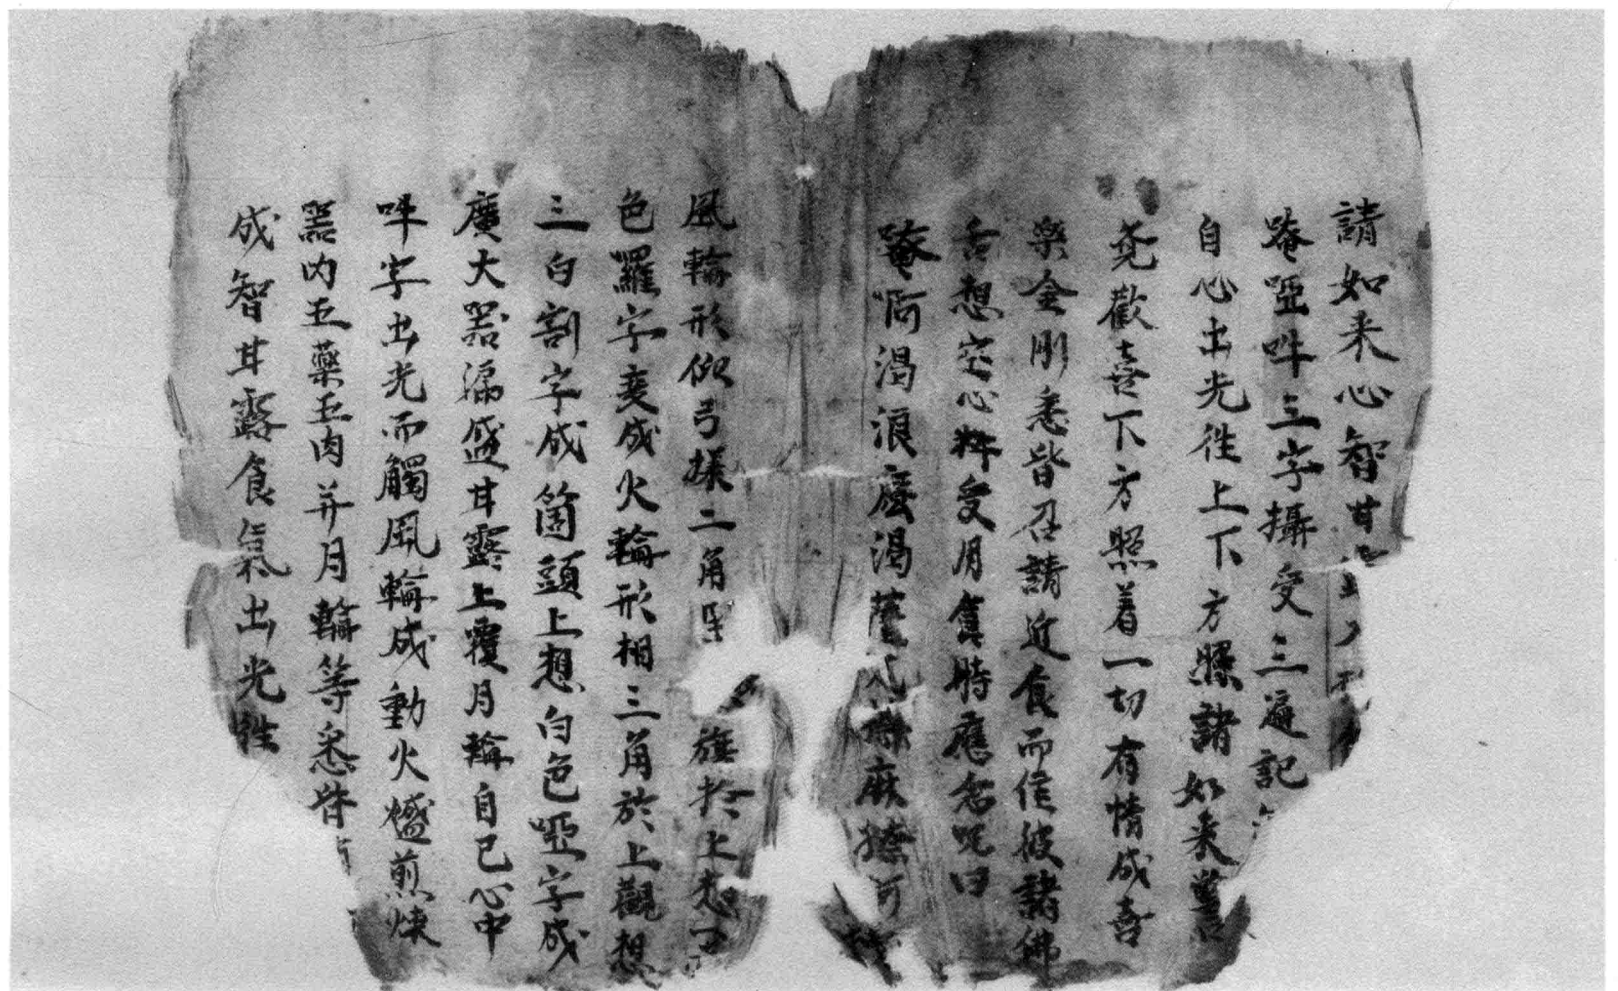 請如来心智甘
唵啞吽三字攝受三遍記
自心出光徃上下方照諸如来
尭歡喜下方照着一切有情成喜
樂金剛悉皆召請近食而侯彼諸佛
舌想空心杵受用食時應念呪曰
唵啊渴浪麻渴薩 麻 阿
風輪形似弓様二角 旗扵上想
色羅字变成火輪形相三角於上觀想
三白割字成箇頭上想白色啞字成
廣大器滿盛甘露上覆月輪自己心中
吽字出光而觸風輪成動火熾煎煉
器内五藥五肉并月輪等悉皆
成智甘露食氣出光徃